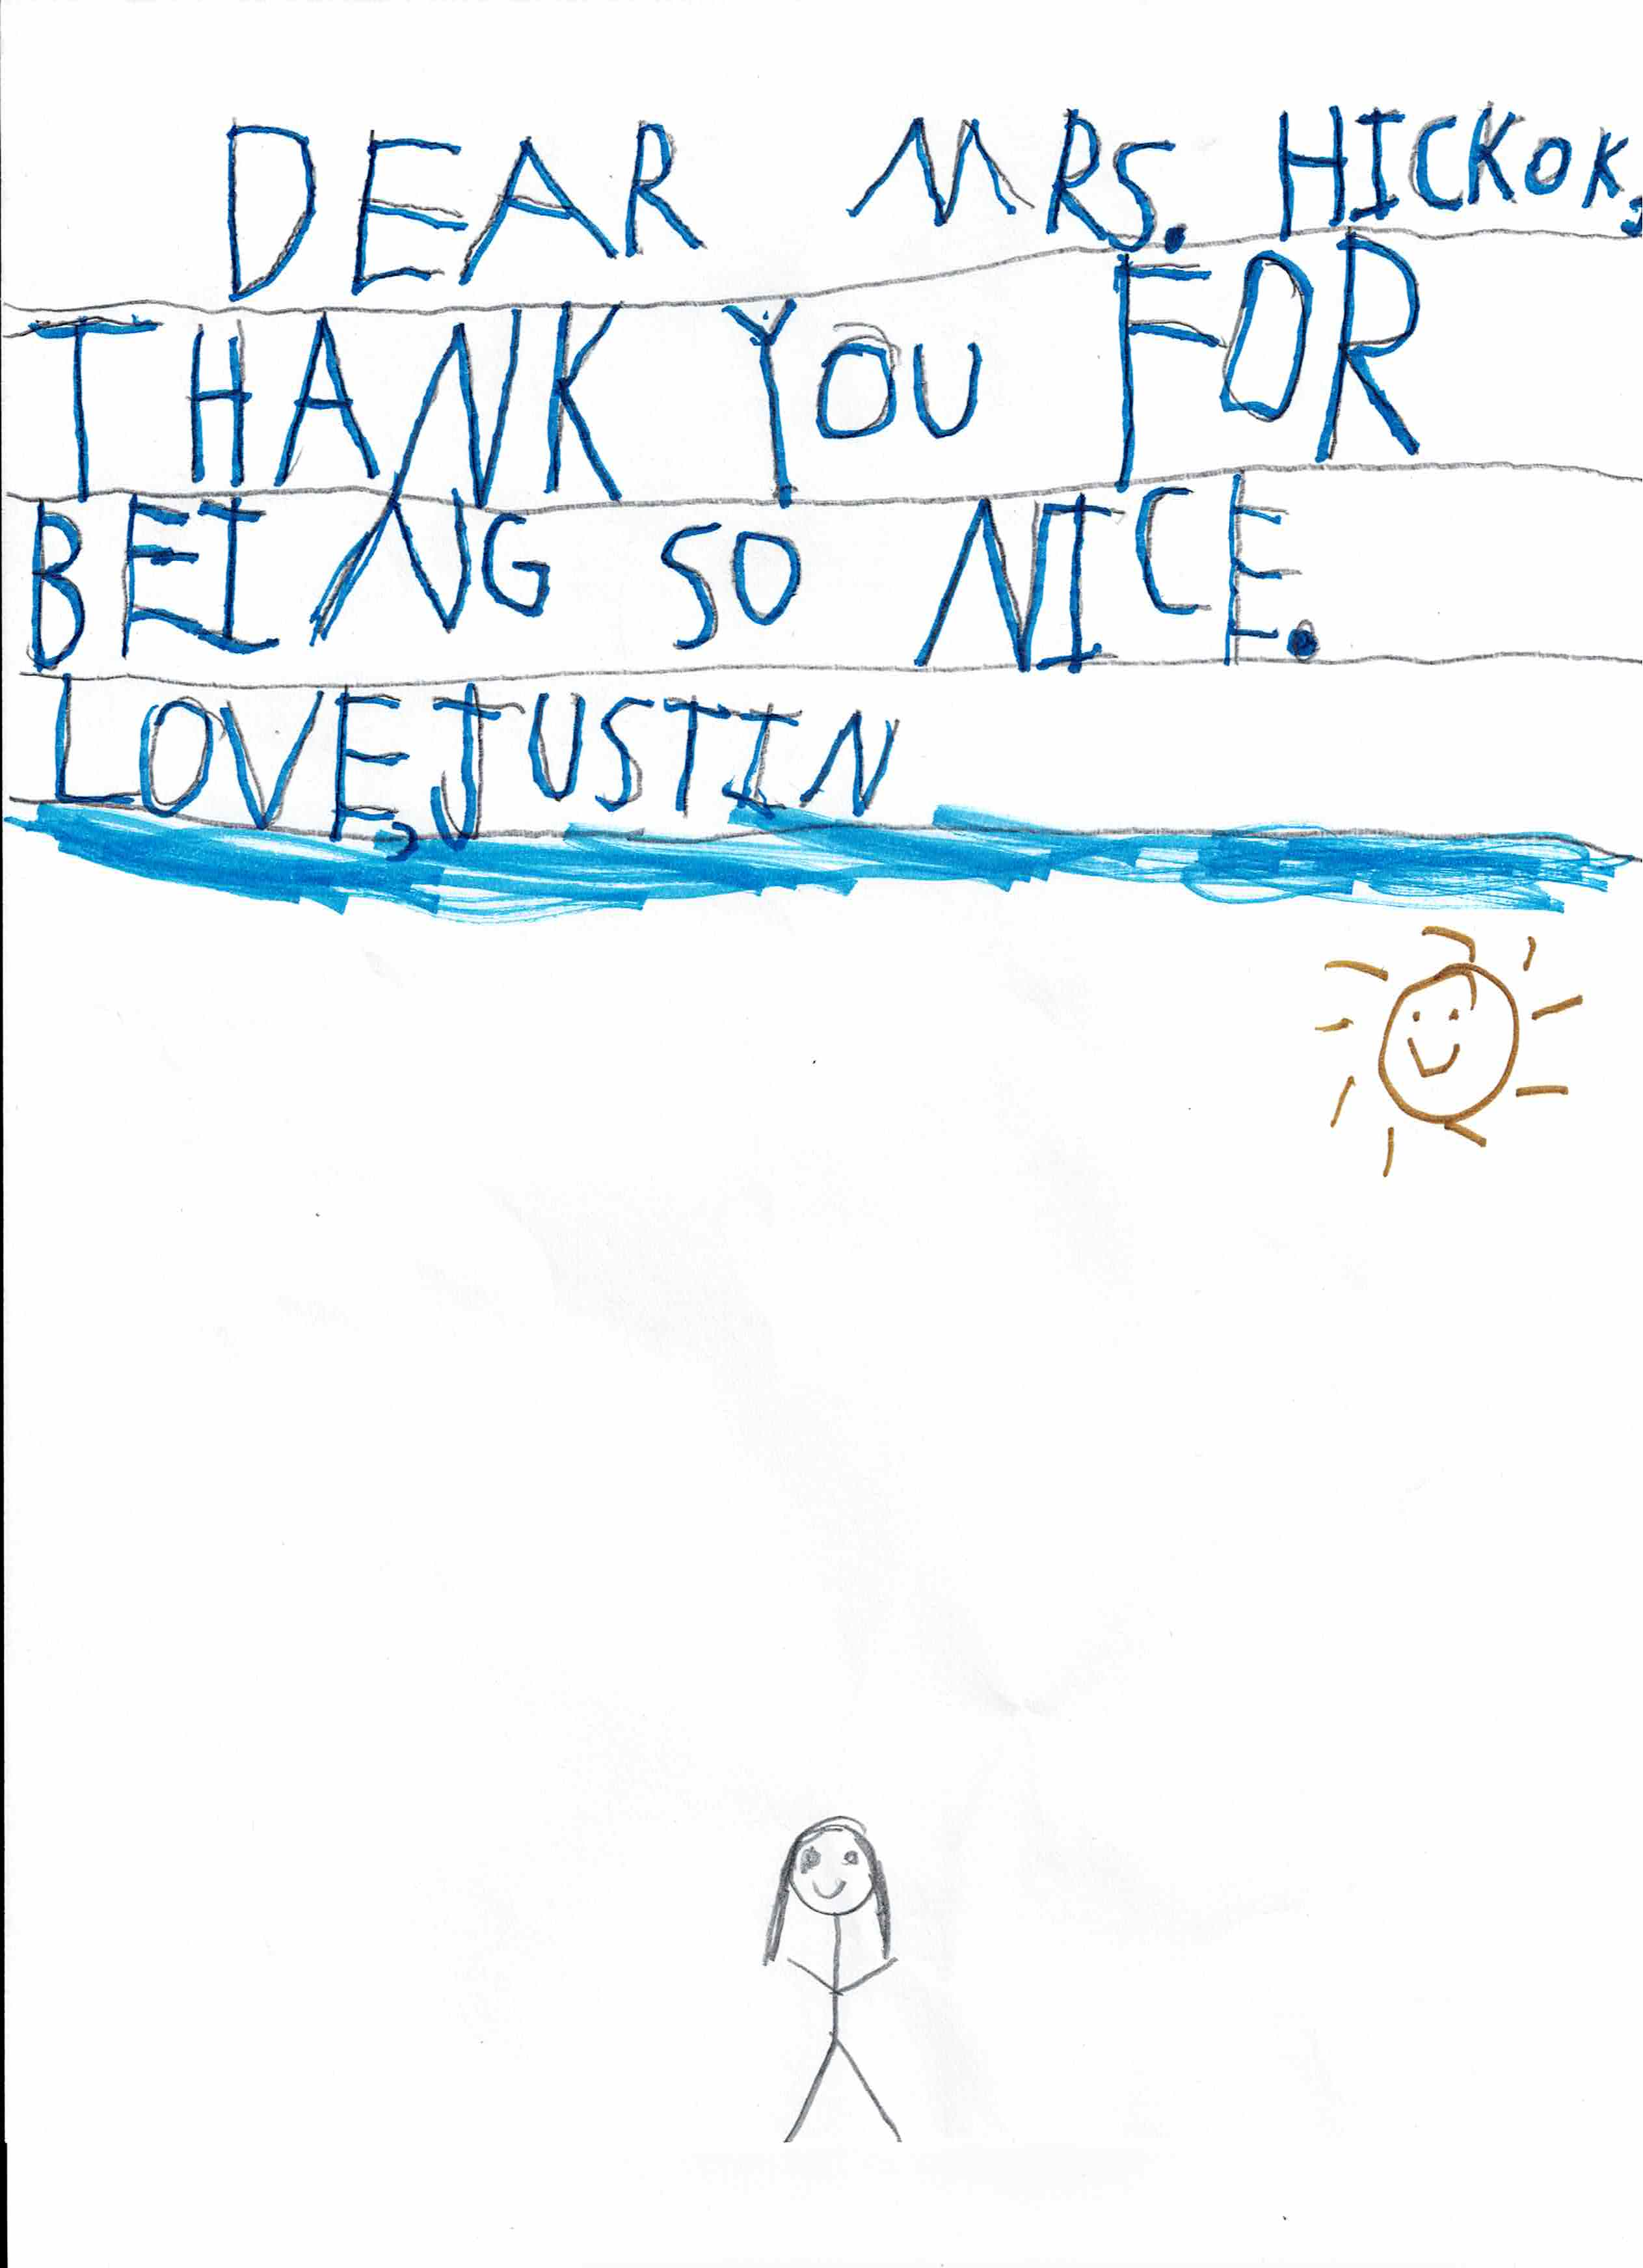 DEAR MRS. HICKOK,
THANK YOU FOR
BEING SO NICE.
LOVE, JUSTIN